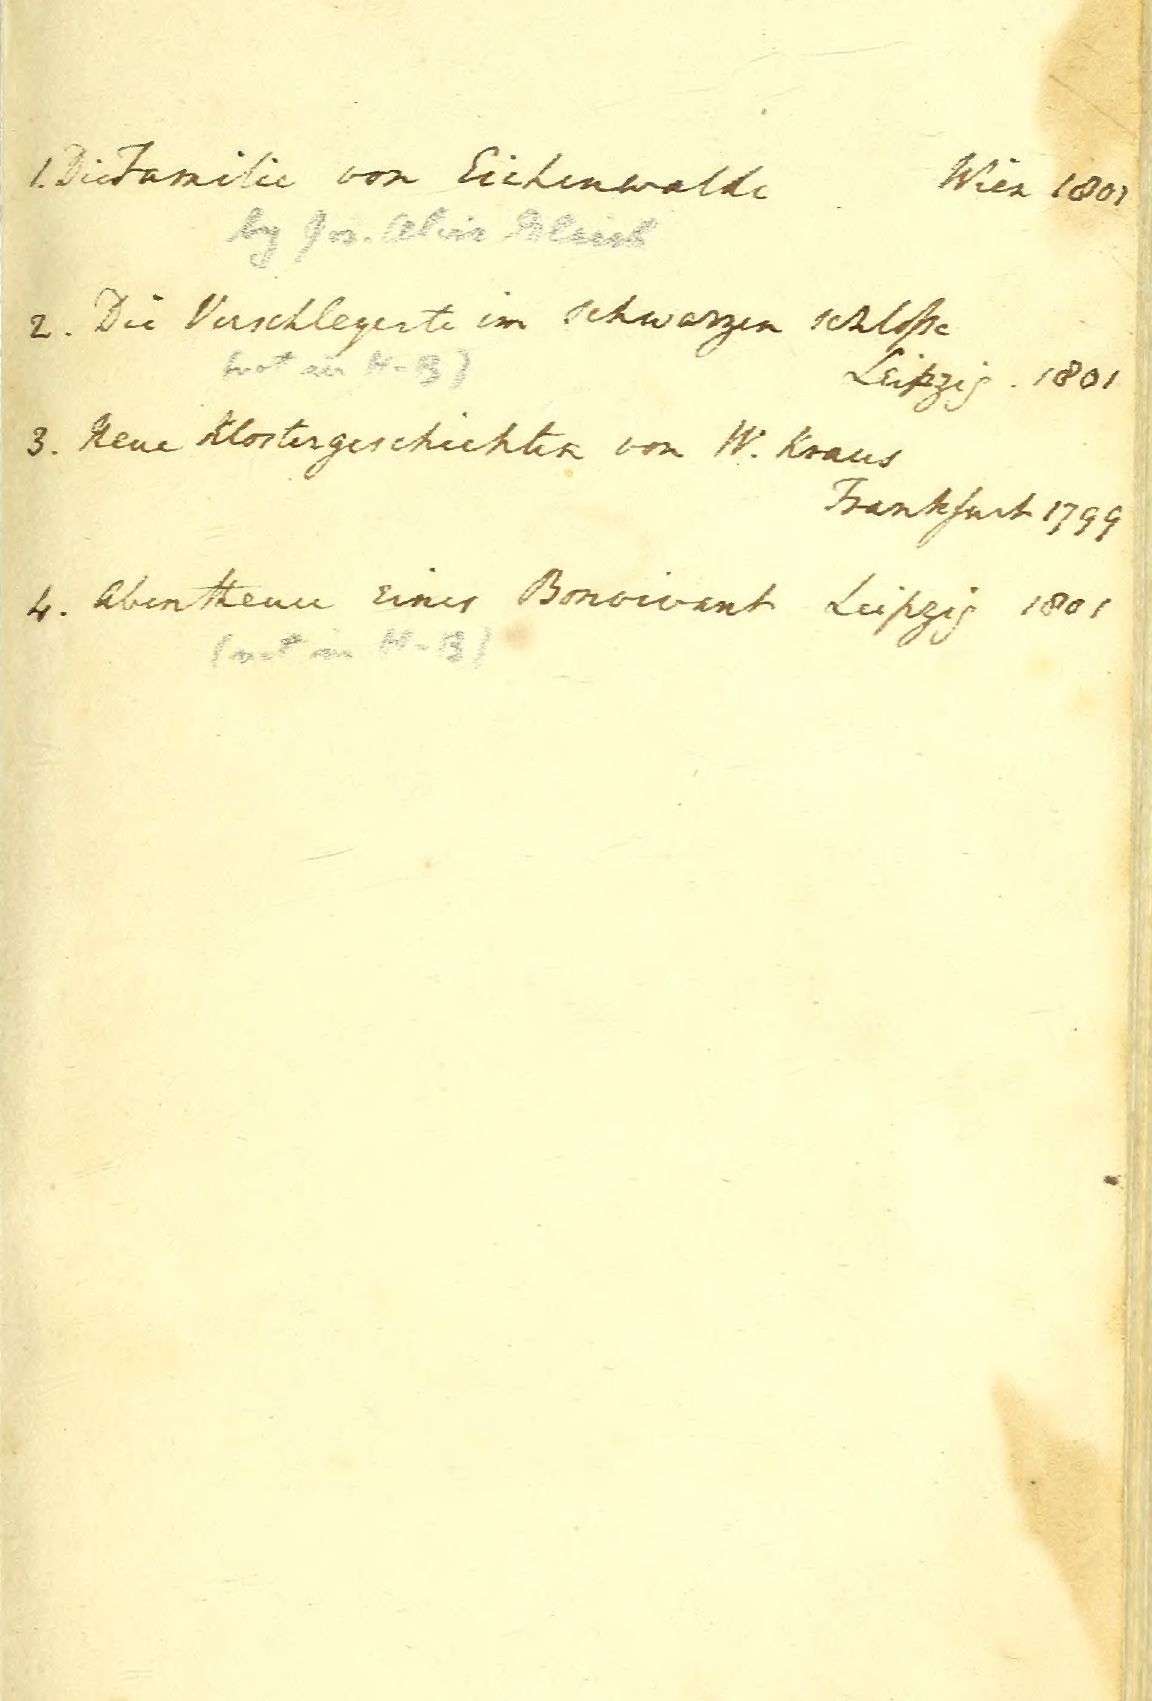 1. Die Familie von Eichenwalde Wien 1801
by Jos. Alois Gleich
2. Die Verschleyerte im schwarzen schloße
(not in H-B) Leipzig. 1801
3. Neue Klostergeschichten von W. Kraus
Frankfurt 1799
4. Abentheuer eines Bonvivant Leipzig 1801
(not in H-B)